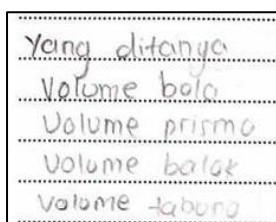 Yang ditanya
Volume bola
Volume prisma
Volume balok
Volume tabung